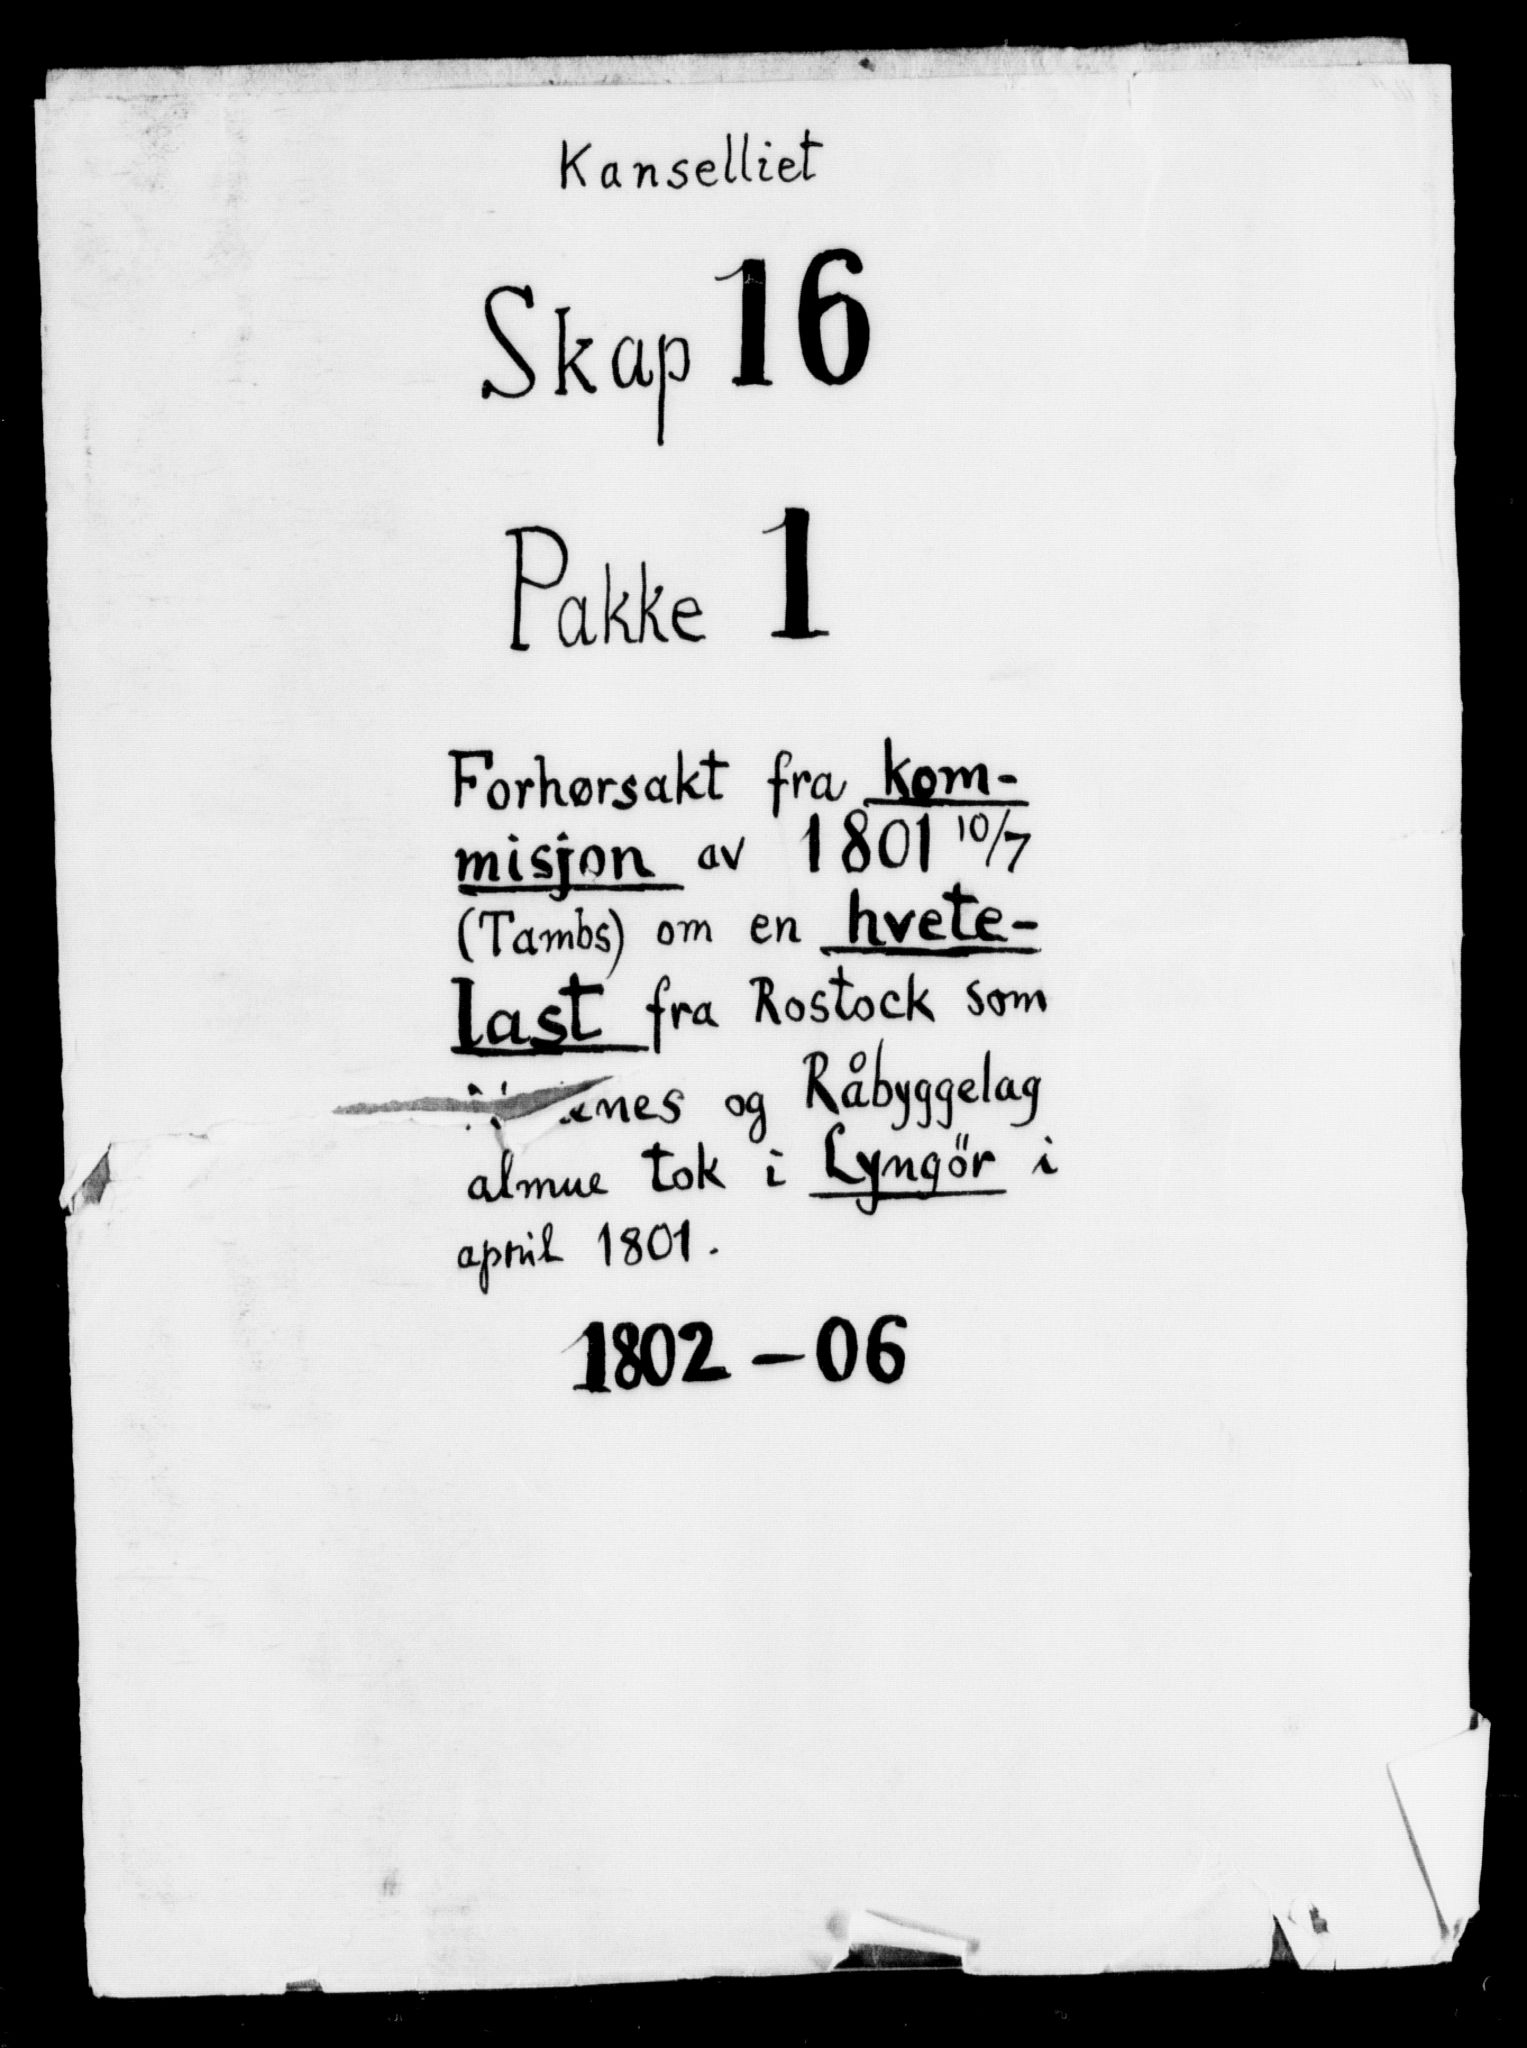 Kanselliet
Skap 16
Pakke 1
Forhørsakt fra kom-
misjon av 1801 10/7
(Tambs) om en hvete-
last fra Rostock som
og Råbyggelag
almue tok i Lyngör i
april 1801.
1802 - 06